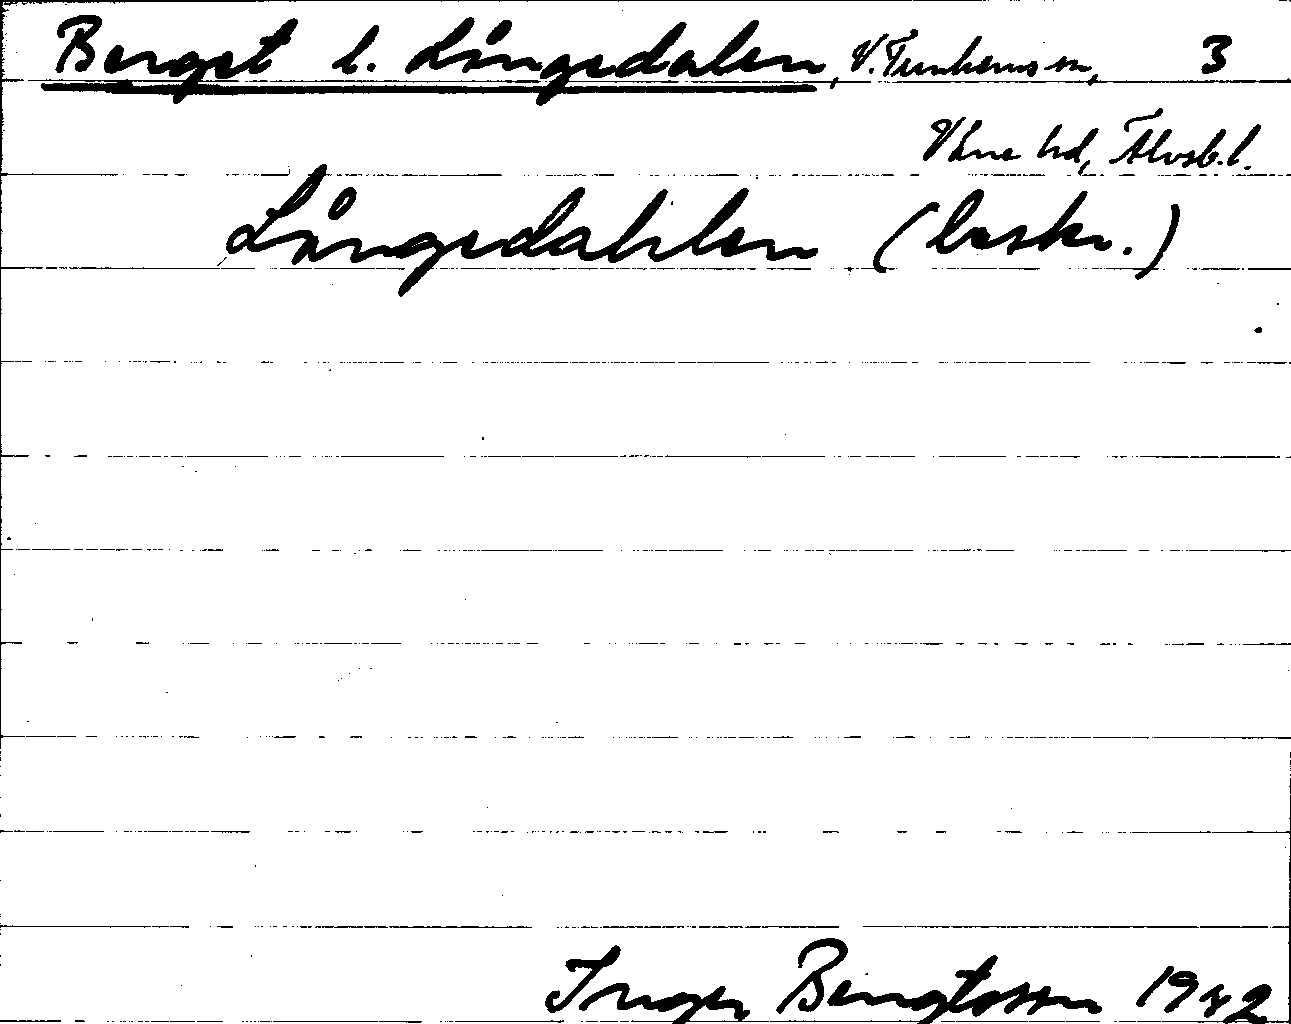 Berget l. Långedalen, V. Tunhems sn, 3
Väne hd, Älvsb. l.
Långedahlen (beskr.)
Inger Bengtsson 1942